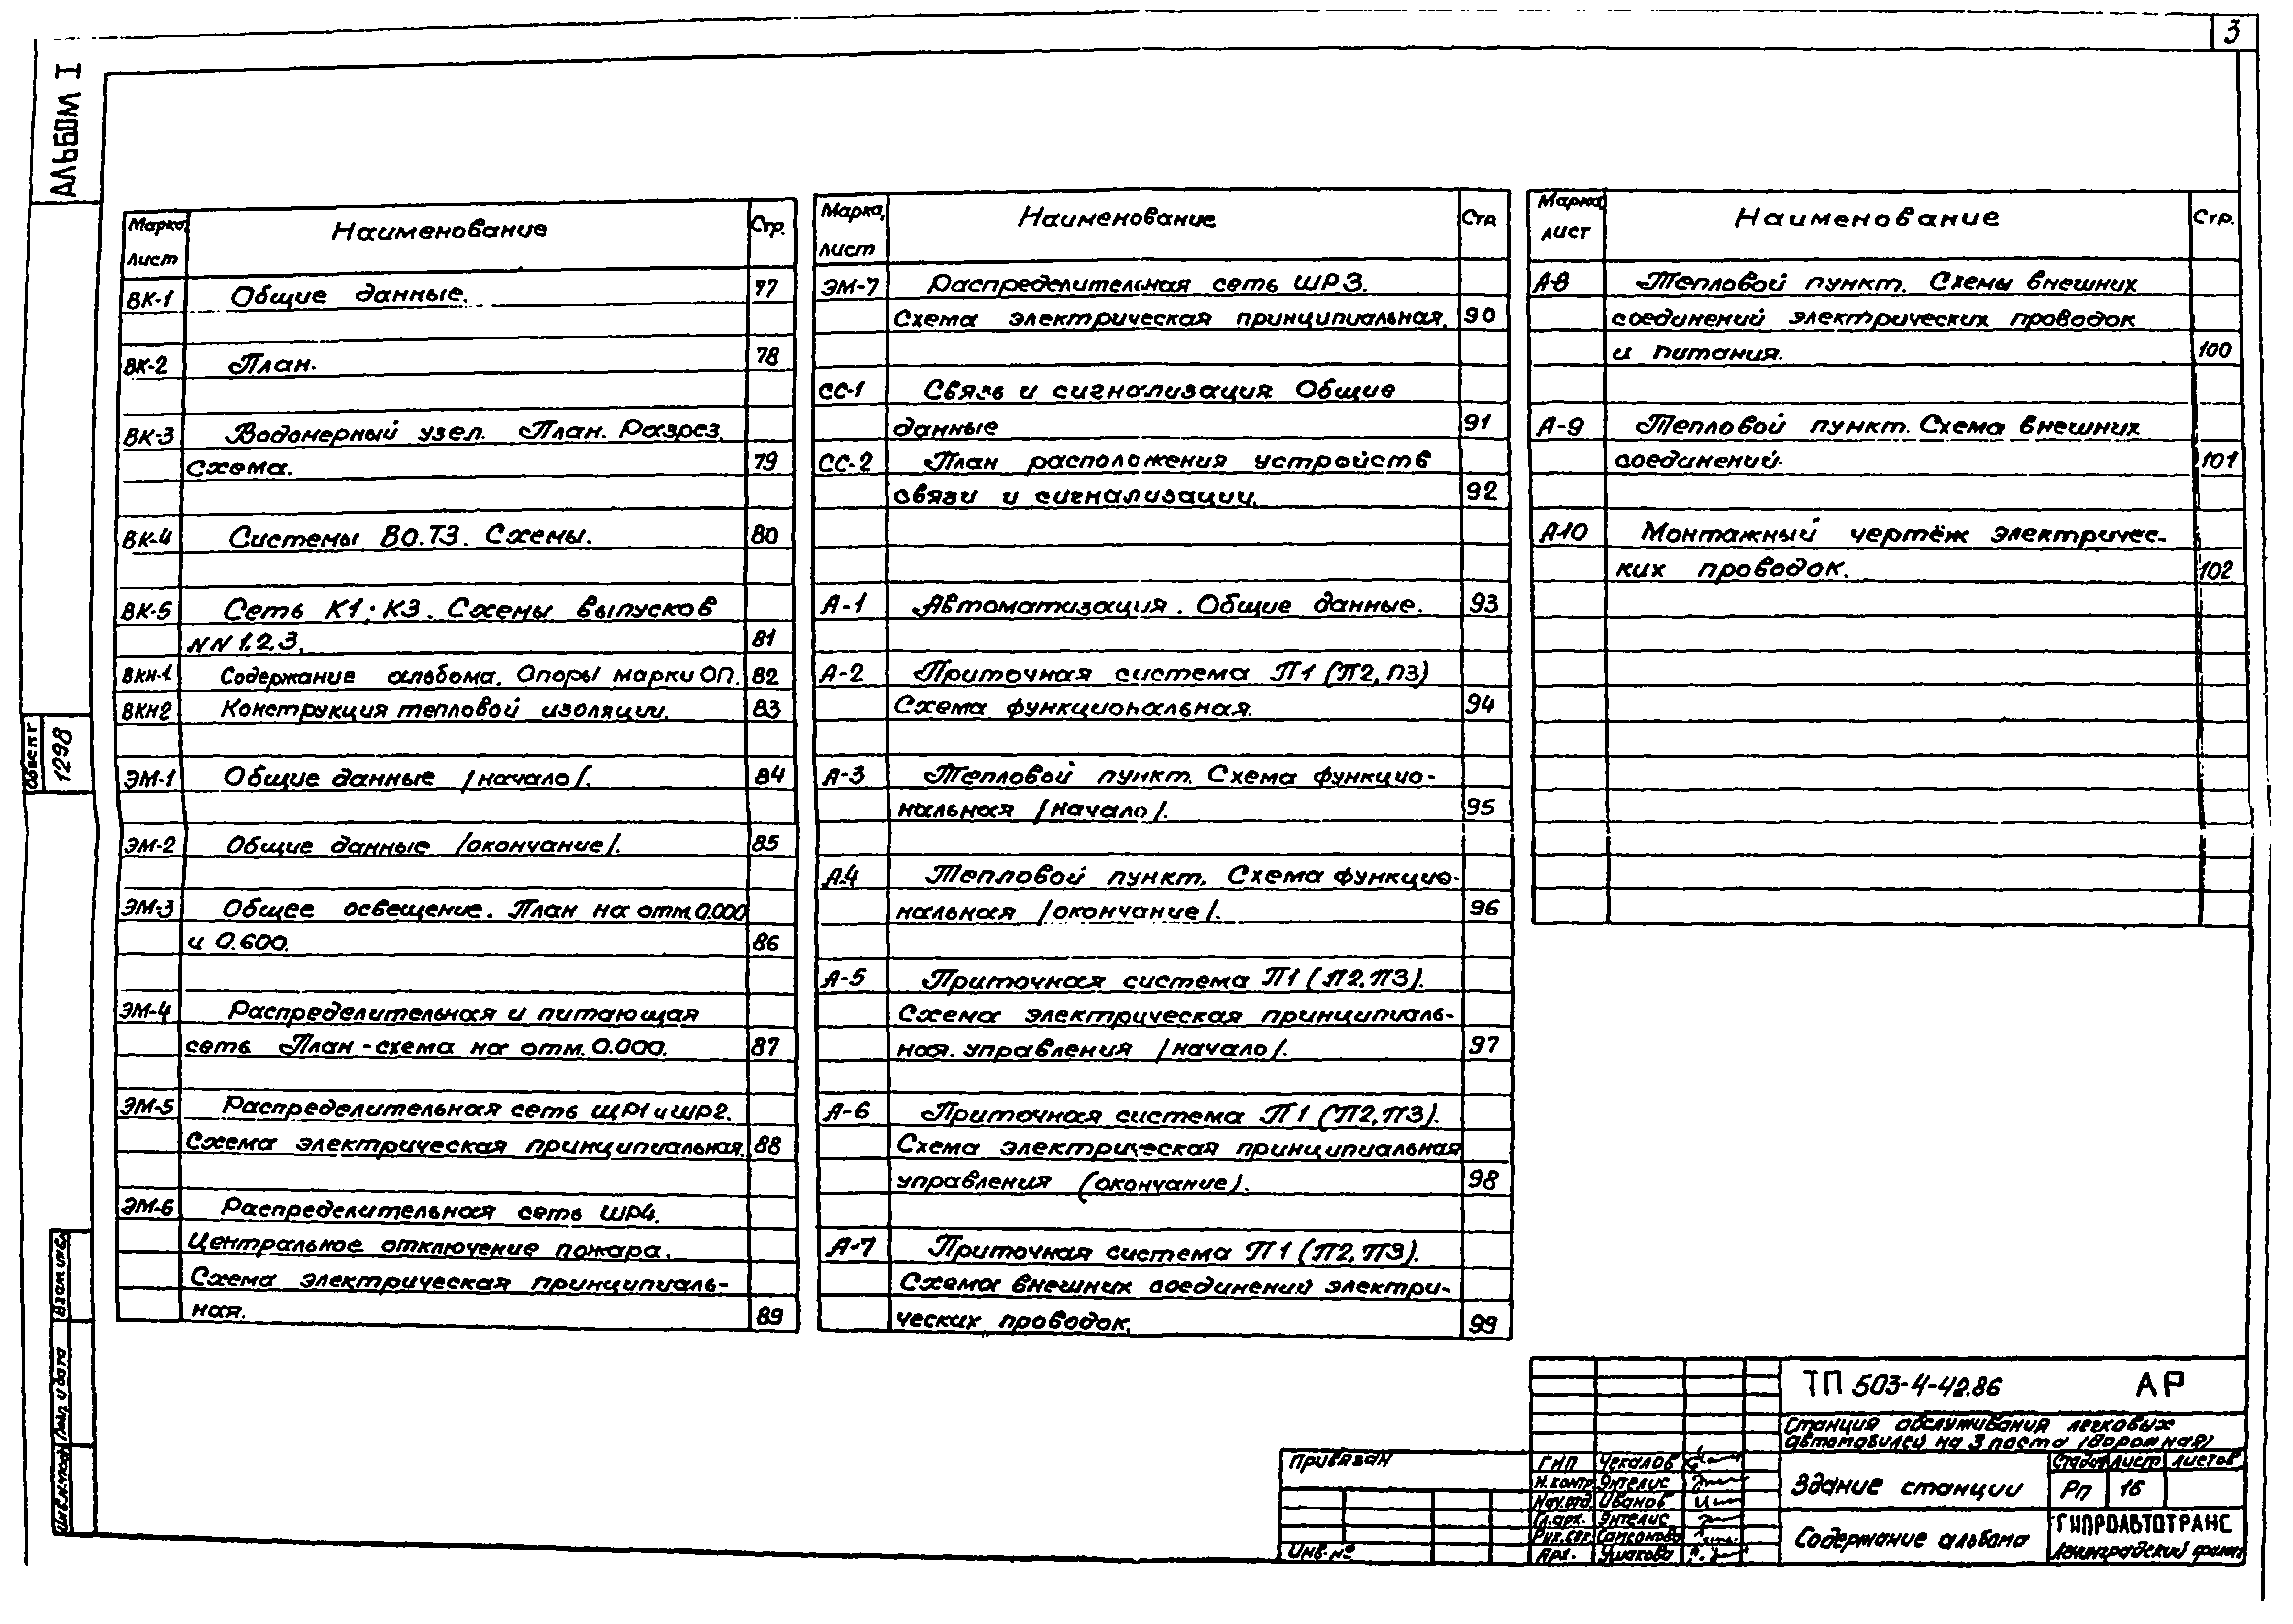 3
АЛЬБОМ I
Объект
1298
Взам инв.
Подп. и дата
Инв.№подл
Марка, лист Наименование Стр.
ВК-1 Общие данные. 77
ВК-2 План. 78
ВК-3 Водомерный узел. План. Разрез.
Схема. 79
ВК-4 Системы ВО.Т3. Схемы. 80
ВК-5 Сеть К1; К3. Схемы выпусков
NN 1,2,3. 81
ВКН-1 Содержание альбома. Опоры марки ОП. 82
ВКН2 Конструкция тепловой изоляции. 83
ЭМ-1 Общие данные /начало/. 84
ЭМ-2 Общие данные /окончание/. 85
ЭМ-3 Общее освещение. План на отм. 0.000
и 0.600. 86
ЭМ-4 Распределительная и питающая
сеть План-схема на отм. 0.000. 87
ЭМ-5 Распределительная сеть ШР1 и ШР2.
Схема электрическая принципиальная. 88
ЭМ-6 Распределительная сеть ШР4.
Центральное отключение пожара.
Схема электрическая принципиаль-
ная. 89
Марка, лист Наименование Стр
ЭМ-7 Распределительная сеть ШР3.
Схема электрическая принципиальная. 90
СС-1 Связь и сигнализация Общие
данные 91
СС-2 План расположения устройств
связи и сигнализации. 92
А-1 Автоматизация. Общие данные. 93
А-2 Приточная система П1 (П2, П3)
Схема функциональная. 94
А-3 Тепловой пункт. Схема функцио-
нальная /начало/. 95
А.4 Тепловой пункт. Схема функцио-
нальная /окончание/. 96
А-5 Приточная система П1 (П2, П3).
Схема электрическая принципиаль-
ная. управления /начало/. 97
А-6 Приточная система П1 (П2, П3).
Схема электрическая принципиальная
управления (окончание). 98
А-7 Приточная система П1 (П2, П3).
Схема внешних соединений электри-
ческих проводок. 99
Марка, лист Наименование Стр.
А-8 Тепловой пункт. Схемы внешних
соединений электрических проводок
и питания. 100
А-9 Тепловой пункт. Схема внешних
соединений. 101
А-10 Монтажный чертёж электричес-
ких проводок. 102
ТП 503-4-42.86 АР
Станция обслуживания легковых
автомобилей на 3 поста
Привязан
Инв.№
ГИП Чекалов
Н.контр. Энтелис
Нач.отд. Иванов
Гл.арх. Энтелис
Рук.бр. Самсонова
Арх. Ушакова
Здание станции
Стадия Лист Листов
РП 16
Содержание альбома
ГИПРОАВТОТРАНС
Ленинградский филиал